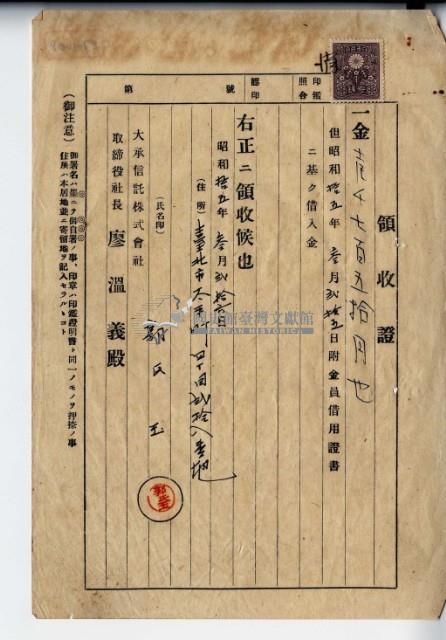 領收證
一金壹千七百五拾円也
但昭和拾五年叁月貳拾五日附金員借用證書
ニ基ク借入金
右正ニ領收候也
昭和拾五年叁月貳拾 日
(住所)臺北市太平町四丁目貳拾八番地
(氏名印)郭氏玉
大承信託株式會社
取締役社長 廖溫義殿
第 號
印鑑
照合
(御注意)
御署名ハ墨ニテ御自署ノ事、印章ハ印鑑證明書ト同一ノモノヲ押捺ノ事
住所ハ本居地並ニ寄留地ヲ記入セラルヽコト
國史館臺灣文獻館
TAIWAN HISTORICA